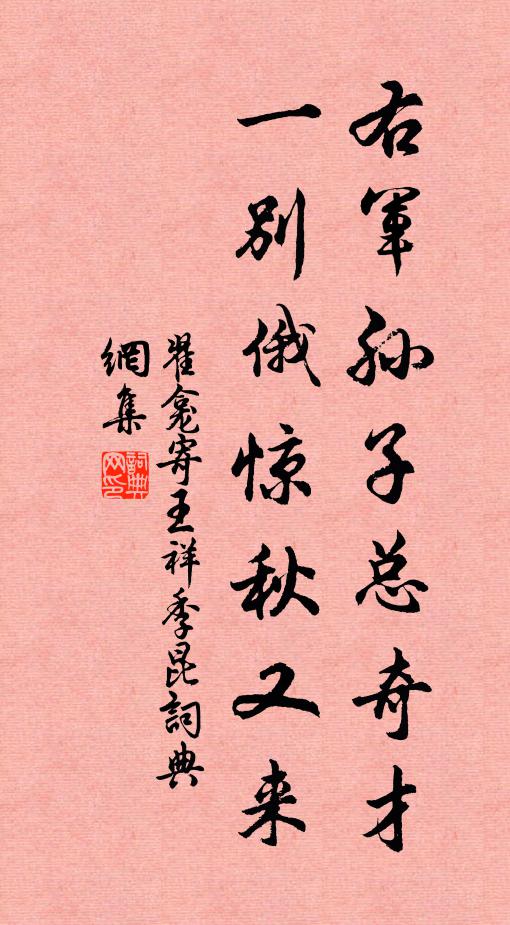 右军孙子总奇才
一别俄惊秋又来
翟龛寄王祥季昆詞典
網集
詞典网印